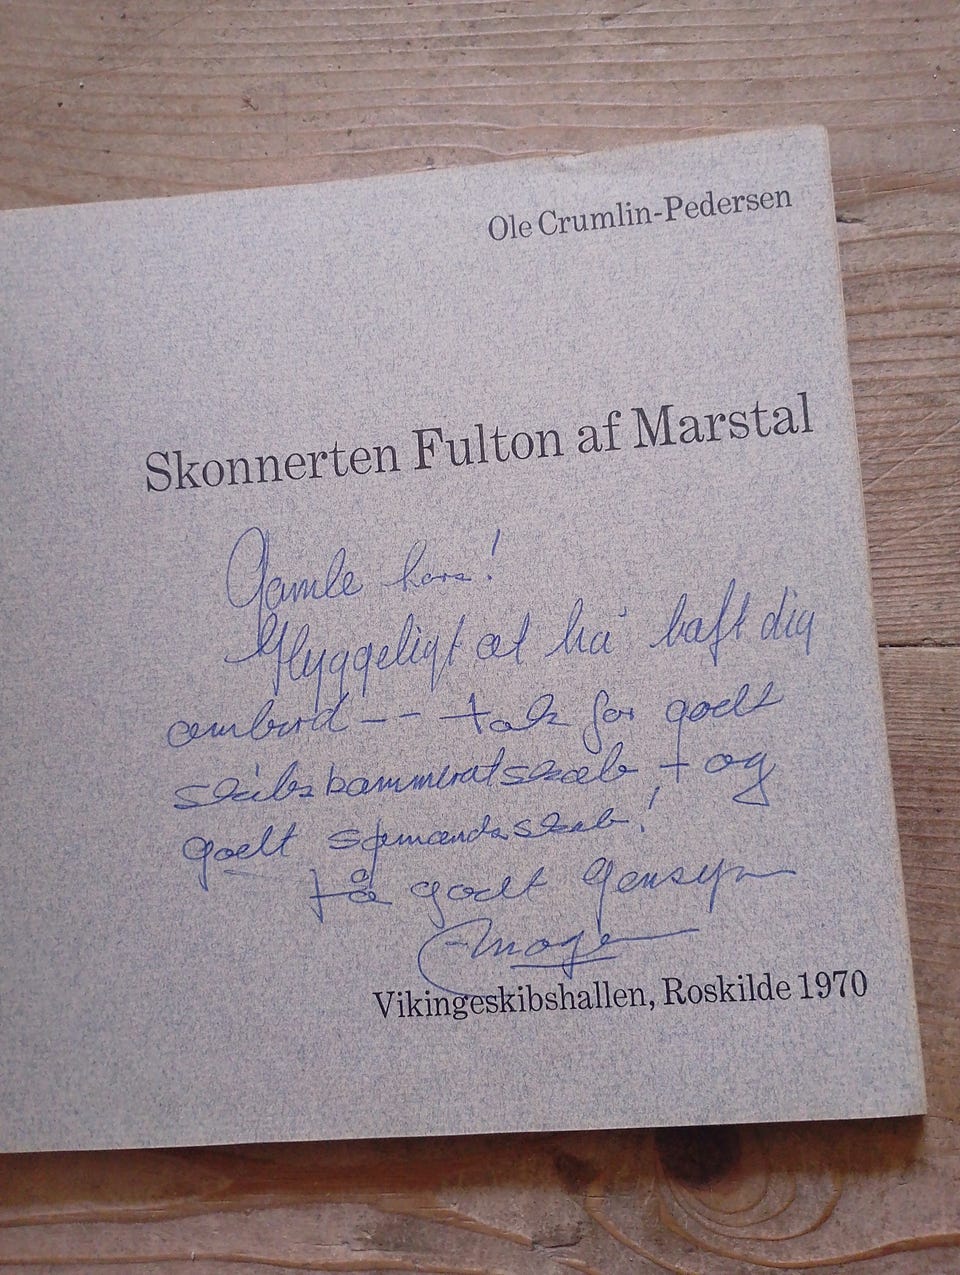 Ole Crumlin-Pedersen
Skonnerten Fulton af Marstal
Gamle
Hyggeligt at ha' haft dig
ombord -- tak for godt
skibskammeratskab, + og
godt sømandsskab!
På godt gensyn
Mogens
Vikingeskibshallen, Roskilde 1970